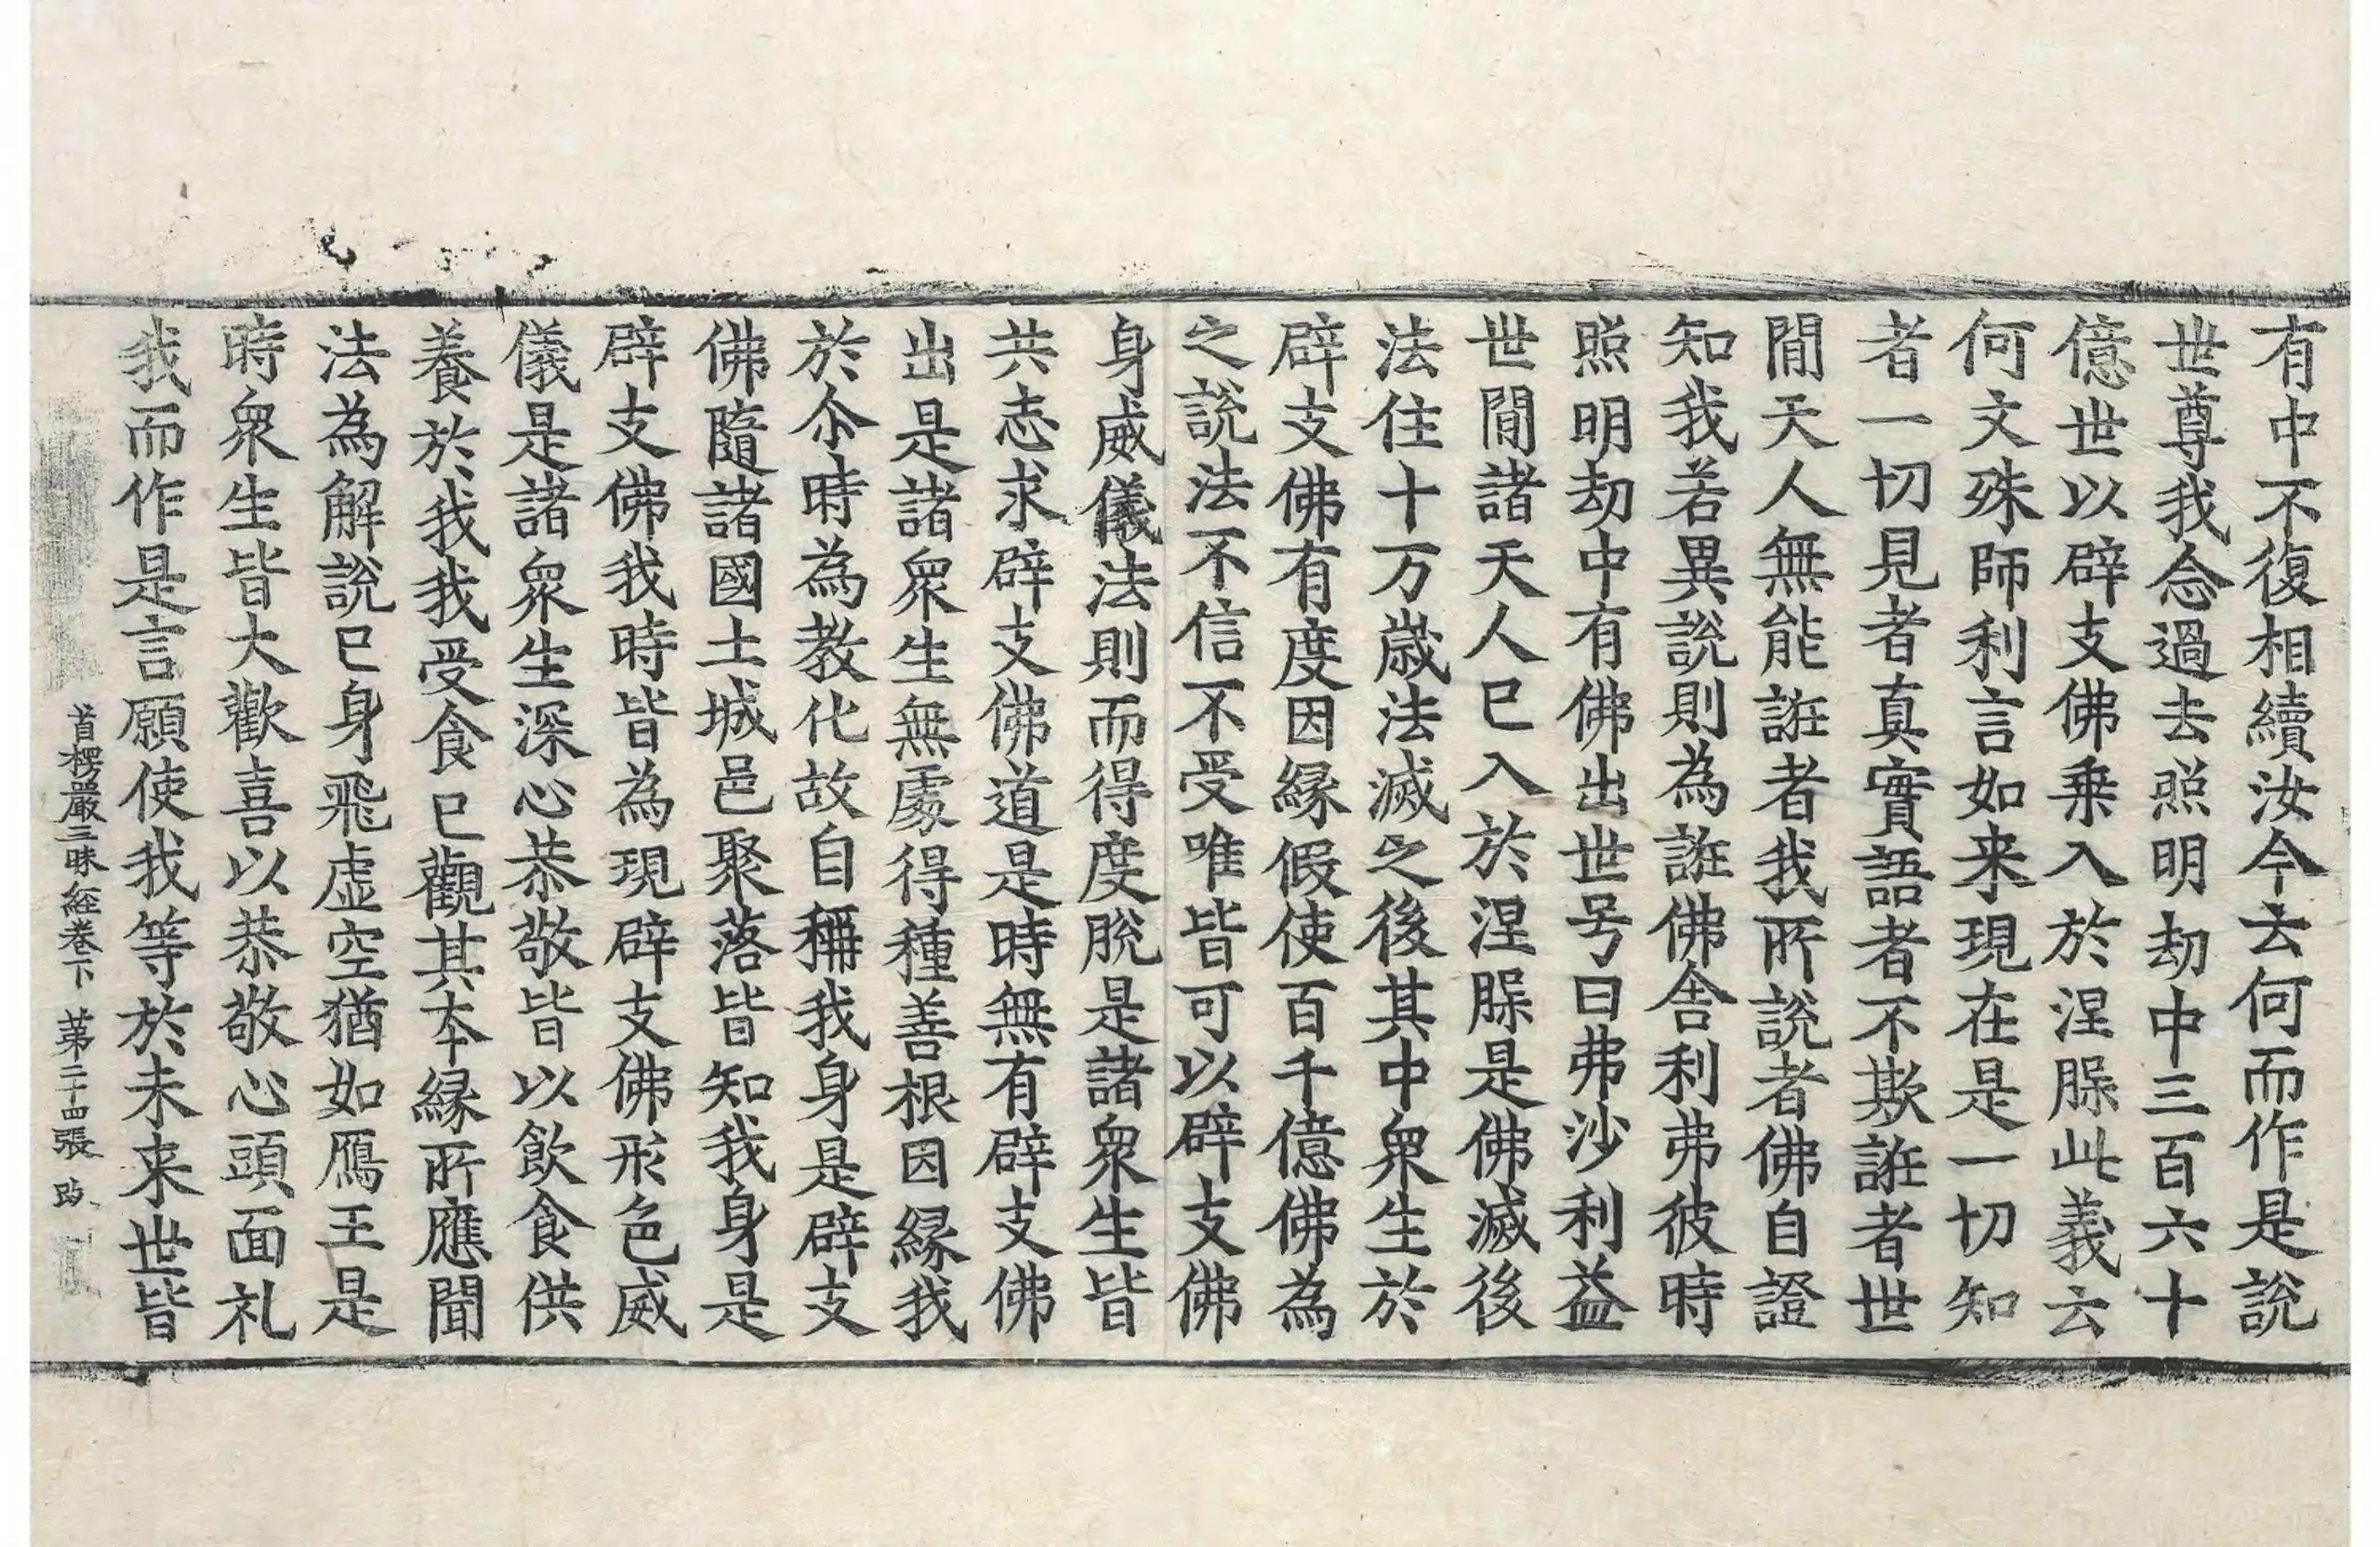 有中不復相續汝今云何而作是說
世尊我念過去照明劫中三百六十
億世以辟支佛乗入於涅脲此義云
何文殊師利言如来現在是一切知
者一切見者真實語者不欺誑者世
閒天人無能誑者我所說者佛自證
知我若異說則為誑佛舎利弗彼時
照明劫中有佛出世号曰弗沙利益
世閒諸天人已入於涅脲是佛滅後
法住十万歳法滅之後其中衆生於
辟支佛有度因緣假使百千億佛為
之說法不信不受唯皆可以辟支佛
身威儀法則而得度脫是諸衆生皆
共志求辟支佛道是時無有辟支佛
出是諸衆生無處得種善根因緣我
於尒時為教化故自稱我身是辟支
佛隨諸國土城邑聚落皆知我身是
辟支佛我時皆為現辟支佛形色威
儀是諸衆生深心恭敬皆以飲食供
養於我我受食已觀其本緣所應聞
法為解說已身飛虛空猶如鴈王是
時衆生皆大歡喜以恭敬心頭面礼
我而作是言願使我等於未来世皆
首楞嚴三昧経卷下　第二十四張